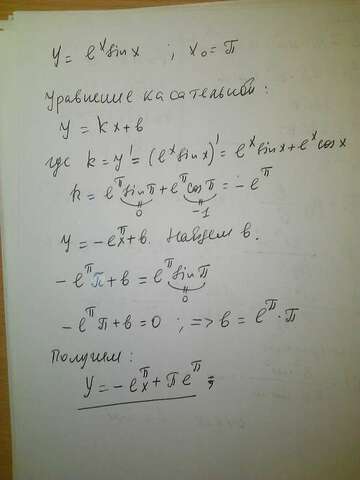 y = eˣ sin x ; x₀ = π
Уравнение касательной:
y = kx + b
где k = y' = (eˣ sin x)' = eˣ sin x + eˣ cos x
k = e^π sin π + e^π cos π = -e^π
0 -1
y = -e^π x + b. Найдем b.
-e^π π + b = e^π sin π
0
-e^π π + b = 0 ; => b = e^π · π
Получим:
y = -e^π x + π e^π ;